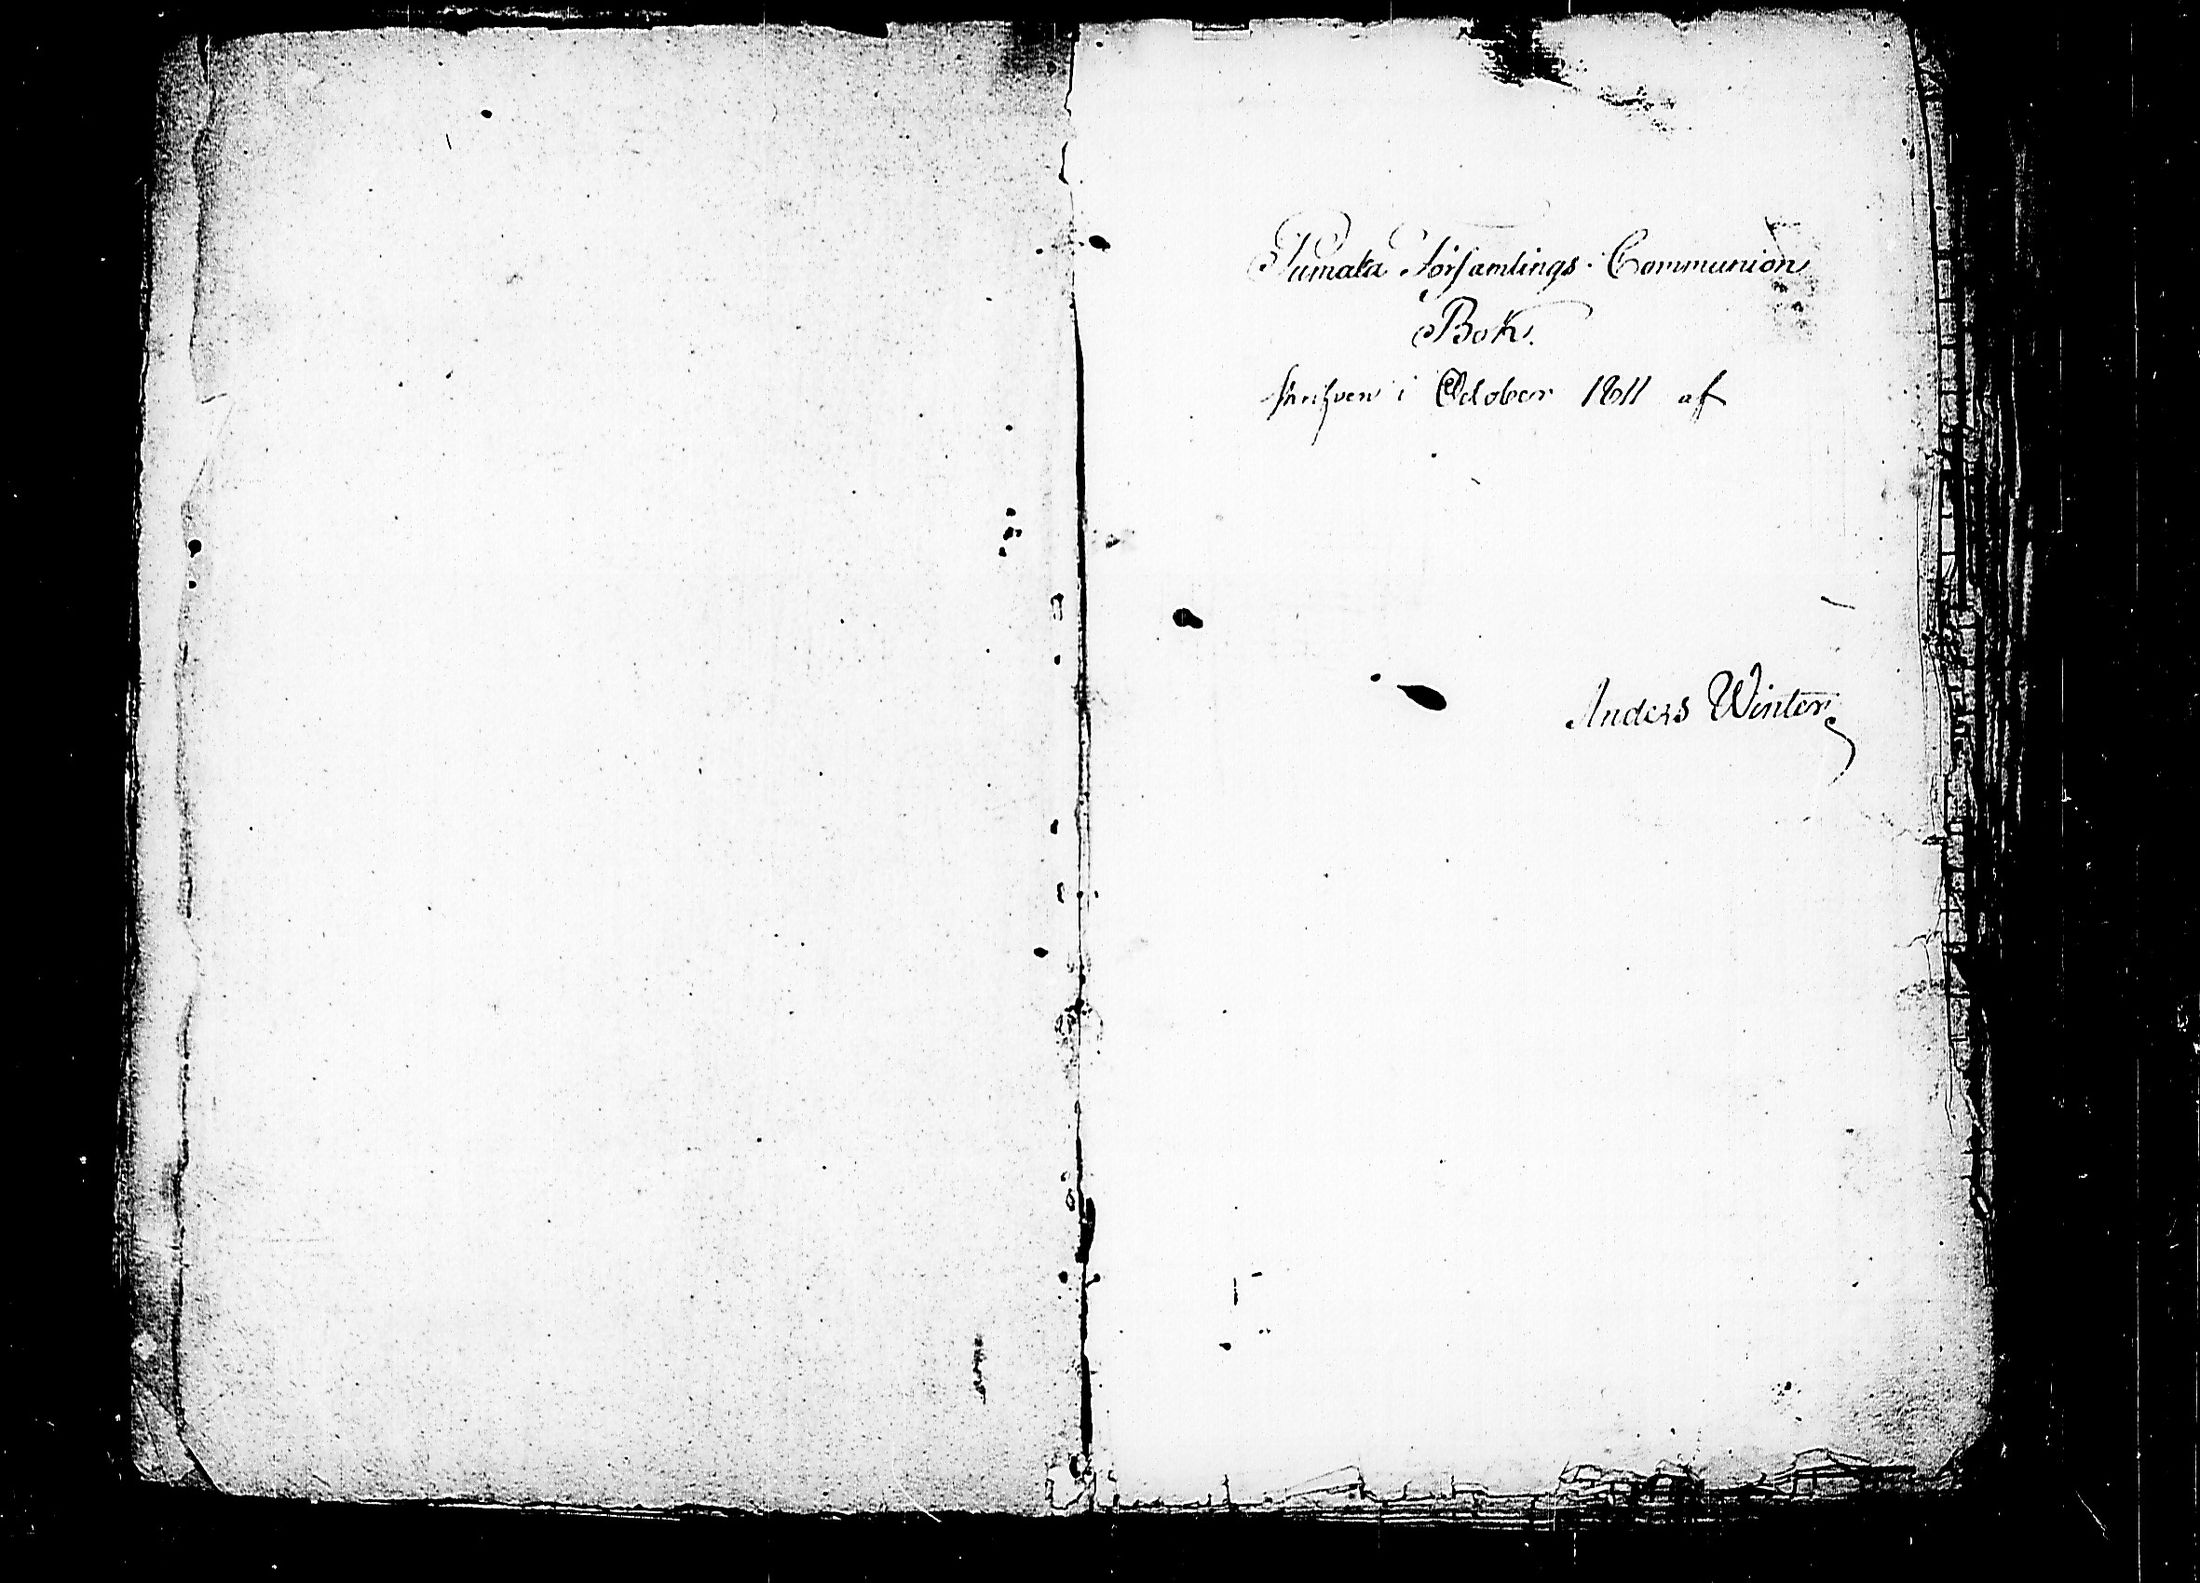 Pumala Församlings Communion
Bok.
skrifven i October 1811 af
Anders Winter